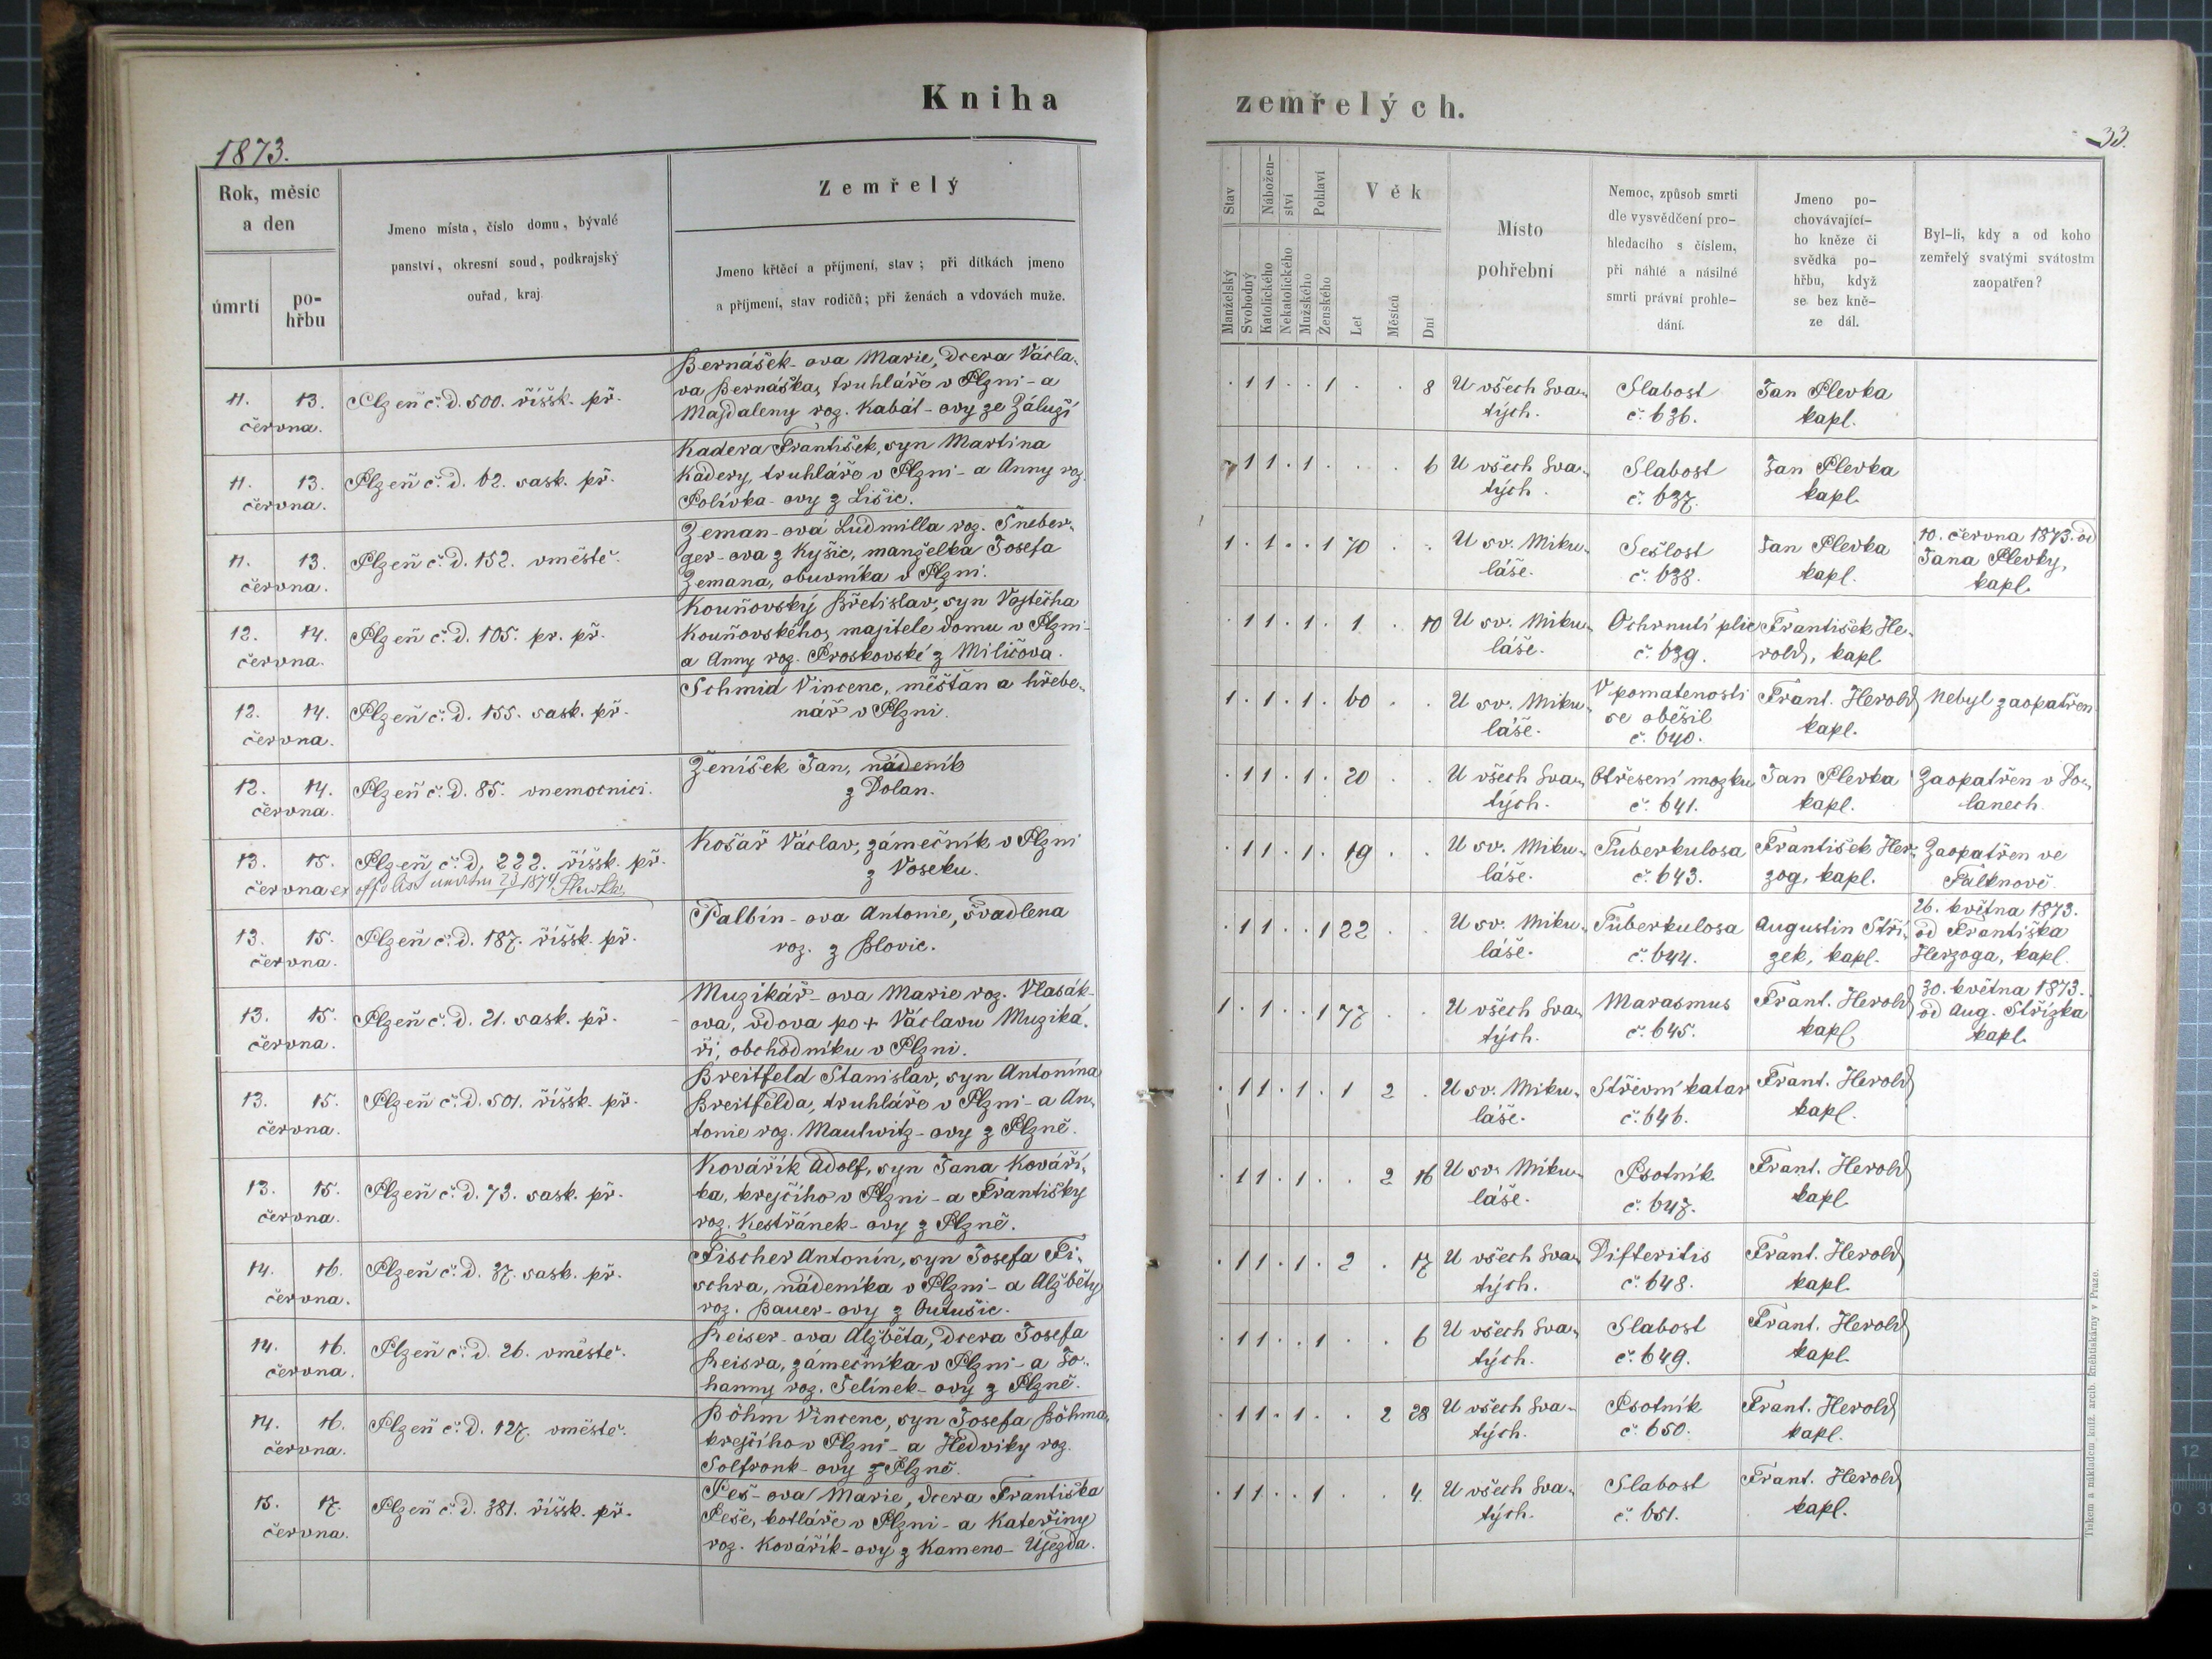 Kniha
zemřelých.
1873.
33.
Rok, měsíc
a den
úmrtí
po-
hřbu
Jmeno místa, číslo domu, bývalé
panství, okresní soud, podkrajský
ouřad, kraj
Zemřelý
Jmeno křtěcí a příjmení, stav; při dítkách jmeno
a příjmení, stav rodičů; při ženách a vdovách muže.
Stav
Nábožen-
ství
Pohlaví
Věk
Manželský
Svobodný
Katolického
Nekatolického
Mužského
Ženského
Let
Měsíců
Dní
Místo
pohřební
Nemoc, způsob smrti
dle vysvědčení pro-
hledacího s číslem,
při náhlé a násilné
smrti právní prohle-
dání.
Jmeno po-
chovávající-
ho kněze či
svědka po-
hřbu, když
se bez kně-
ze dál.
Byl-li, kdy a od koho
zemřelý svatými svátostmi
zaopatřen?
11. 13.
června.
Plzeň č. d. 500. říšsk. př.
Bernášek-ova Marie, dcera Václa-
va Bernáška, truhláře v Plzni - a
Majdaleny roz. Kabát-ovy ze Záluží
. 1 1 . . 1 . . 8
U všech Sva-
tých.
Slabost
č. 636.
Jan Plevka
kapl.
11. 13.
června.
Plzeň č. d. 62. sask. př.
Kadera František, syn Martina
Kadery, truhláře v Plzni - a Anny roz.
Polívka-ovy z Lišic.
1 1 . 1 . . . 6
U všech Sva-
tých.
Slabost
č. 637.
Jan Plevka
kapl.
11. 13.
června.
Plzeň č. d. 152. vměstě.
Zeman-ová Ludmilla roz. Šneber-
ger-ova z Kyšic, manželka Josefa
Zemana, obuvníka v Plzni.
1 . 1 . . 1 70 . .
U sv. Miku-
láše.
Sešlost
č. 638.
Jan Plevka
kapl.
10. června 1873. od
Jana Plevky,
kapl.
12. 14.
června.
Plzeň č. d. 105. pr. př.
Kouňovský Břetislav, syn Vojtěcha
Kouňovského, majitele domu v Plzni-
a Anny roz. Proskovské z Miličova.
. 1 1 . 1 . 1 . 10
U sv. Miku-
láše.
Ochrnutí plic
č. 639.
František He-
rold, kapl.
12. 14.
června.
Plzeň č. d. 155. sask. př.
Schmid Vincenc, měšťan a hřebe-
nář v Plzni.
1 . 1 . 1 . 60 . .
U sv. Miku-
láše.
V pomatenosti
se oběsil
č. 640.
Frant. Herold
kapl.
Nebyl zaopatřen
12. 14.
června.
Plzeň č. d. 85. vnemocnici.
Ženíšek Jan, nádeník
z Dolan.
. 1 1 . 1 . 20 . .
U všech Sva-
tých.
Otřesení mozku
č. 641.
Jan Plevka
kapl.
Zaopatřen v Do-
lanech.
13. 15.
června
Plzeň č. d. 222. říšsk. př.
ex offo list
Košař Václav, zámečník v Plzni
z Voseku.
. 1 1 . 1 . 19 . .
U sv. Miku-
láše.
Tuberkulosa
č. 643.
František Her-
zog, kapl.
Zaopatřen ve
Falknově.
13. 15.
června.
Plzeň č. d. 187. říšsk. př.
Palbín-ova Antonie, švadlena
roz. z Blovic.
. 1 1 . . 1 22 . .
U sv. Miku-
láše.
Tuberkulosa
č. 644.
Augustin Stří-
zek, kapl.
26. května 1873.
od Františka
Herzoga, kapl.
13. 15.
června.
Plzeň č. d. 21. sask. př.
Muzikář-ova Marie roz. Vlasák-
ova, vdova po + Václavu Muziká-
ři, obchodníku v Plzni.
1 . 1 . . 1 77 . .
U všech Sva-
tých.
Marasmus
č. 645.
Frant. Herold
kapl.
30. května 1873.
od Aug. Střízka
kapl.
13. 15.
června.
Plzeň č. d. 501. říšsk. př.
Breitfeld Stanislav, syn Antonína
Breitfelda, truhláře v Plzni - a An-
tonie roz. Mautwitz-ovy z Plzně.
. 1 1 . 1 . 1 2 .
U sv. Miku-
láše.
Střevní katar
č. 646.
Frant. Herold
kapl.
13. 15.
června.
Plzeň č. d. 73. sask. př.
Kovářík Adolf, syn Jana Kováří-
ka, krejčího v Plzni - a Františky
roz. Kestřánek-ovy z Plzně.
. 1 1 . 1 . . 2 16
U sv. Miku-
láše.
Psotník
č. 647.
Frant. Herold
kapl.
14. 16.
června.
Plzeň č. d. 37. sask. př.
Fischer Antonín, syn Josefa Fi-
schra, nádeníka v Plzni - a Alžběty
roz. Bauer-ovy z Outušic.
. 1 1 . 1 . 2 . 17
U všech Sva-
tých.
Difteritis
č. 648.
Frant. Herold
kapl.
14. 16.
června.
Plzeň č. d. 26. vměstě.
Reiser-ova Alžběta, dcera Josefa
Reisra, zámečníka v Plzni - a Jo-
hanny roz. Jelínek-ovy z Plzně.
. 1 1 . . 1 . . 6
U všech Sva-
tých.
Slabost
č. 649.
Frant. Herold
kapl.
14. 16.
června.
Plzeň č. d. 127. vměstě.
Böhm Vincenc, syn Josefa Böhma,
krejčího v Plzni - a Hedviky roz.
Solfronk-ovy z Plzně.
. 1 1 . 1 . . 2 28
U všech Sva-
tých.
Psotník
č. 650.
Frant. Herold
kapl.
15. 17.
června.
Plzeň č. d. 381. říšsk. př.
Peš-ova Marie, dcera Františka
Peše, kotláře v Plzni - a Kateřiny
roz. Kovářík-ovy z Kameno-Újezda.
. 1 1 . . 1 . . 4.
U všech Sva-
tých.
Slabost
č. 651.
Frant. Herold
kapl.
Tiskem a nákladem kníž. arcib. knihtiskárny v Praze.